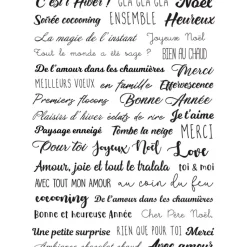 C'est l'Hiver! GLA GLA GLA Noël
Soirée cocooning ENSEMBLE Heureux
La magie de l'instant Joyeux Noël
Tout le monde a été sage? BIEN AU CHAUD
De l'amour dans les chaumières Merci
MEILLEURS VOEUX en famille Effervescence
Premiers flocons Bonne Année
Plaisirs d'hiver éclats de rire Je t'aime
Paysage enneigé Tombe la neige MERCI
Pour toi Joyeux NOËL Love
Amour, joie et tout le tralala toi & moi
AVEC TOUT MON AMOUR au coin du feu
cocooning De l'amour dans les chaumières
Bonne et heureuse Année Cher Père Noël
Une petite surprise RIEN QUE POUR TOI Merci
Ambiance chocolat chaud Avec amour